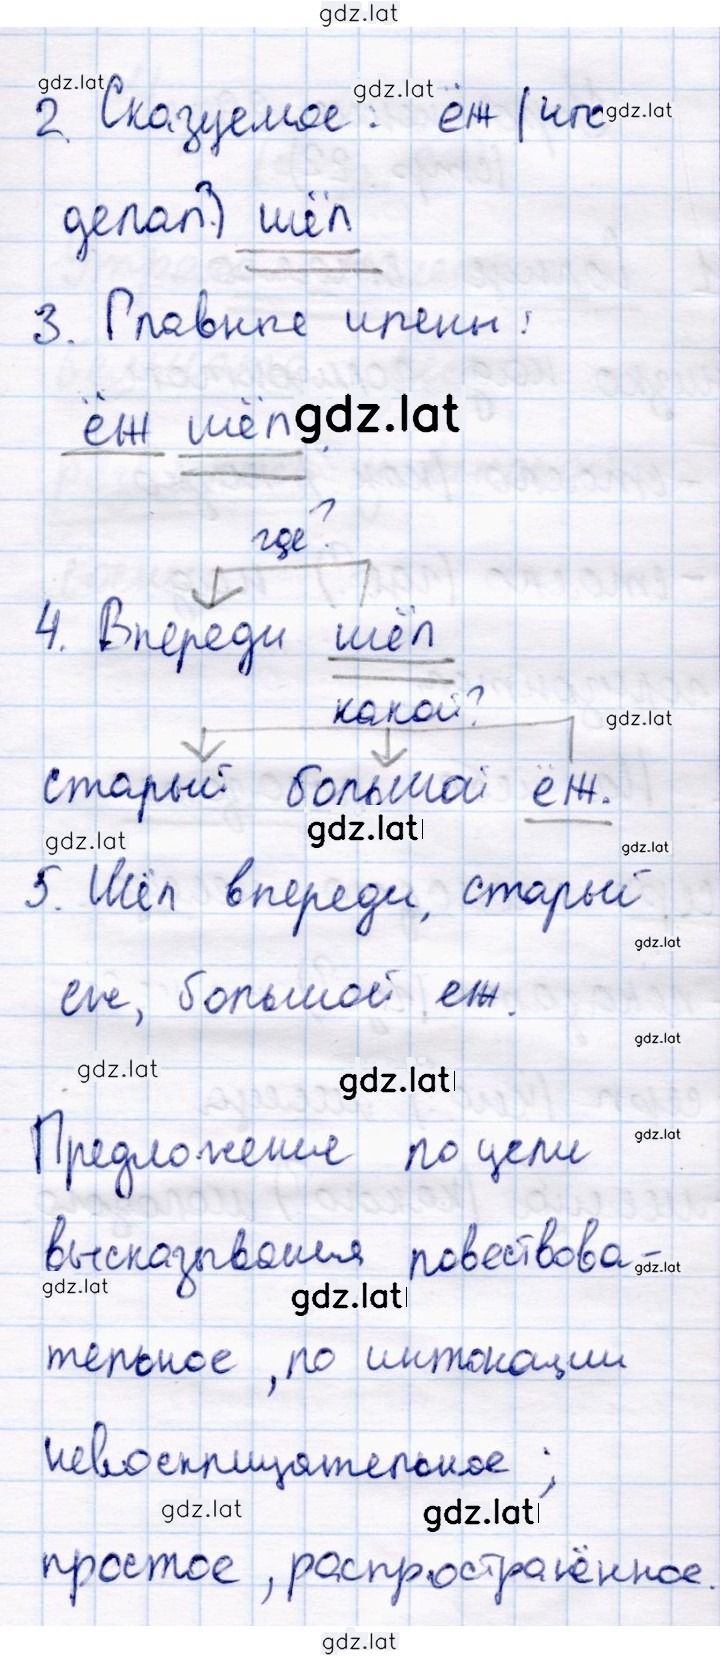 gdz.lat
gdz.lat gdz.lat
2. Сказуемое: ёж (что gdz.lat
делал?) шёл
3. Главные члены:
ёж шёл. gdz.lat
где?
4. Впереди шёл
какой? gdz.lat
старый большой ёж.
gdz.lat gdz.lat gdz.lat
5. Шёл впереди, старый
gdz.lat
еж, большой еж.
gdz.lat
gdz.lat gdz.lat
Предложение по цели gdz.lat
высказывания повествова- gdz.lat
gdz.lat gdz.lat
тельное, по интонации
невосклицательное;
gdz.lat gdz.lat
простое, распространённое.
gdz.lat